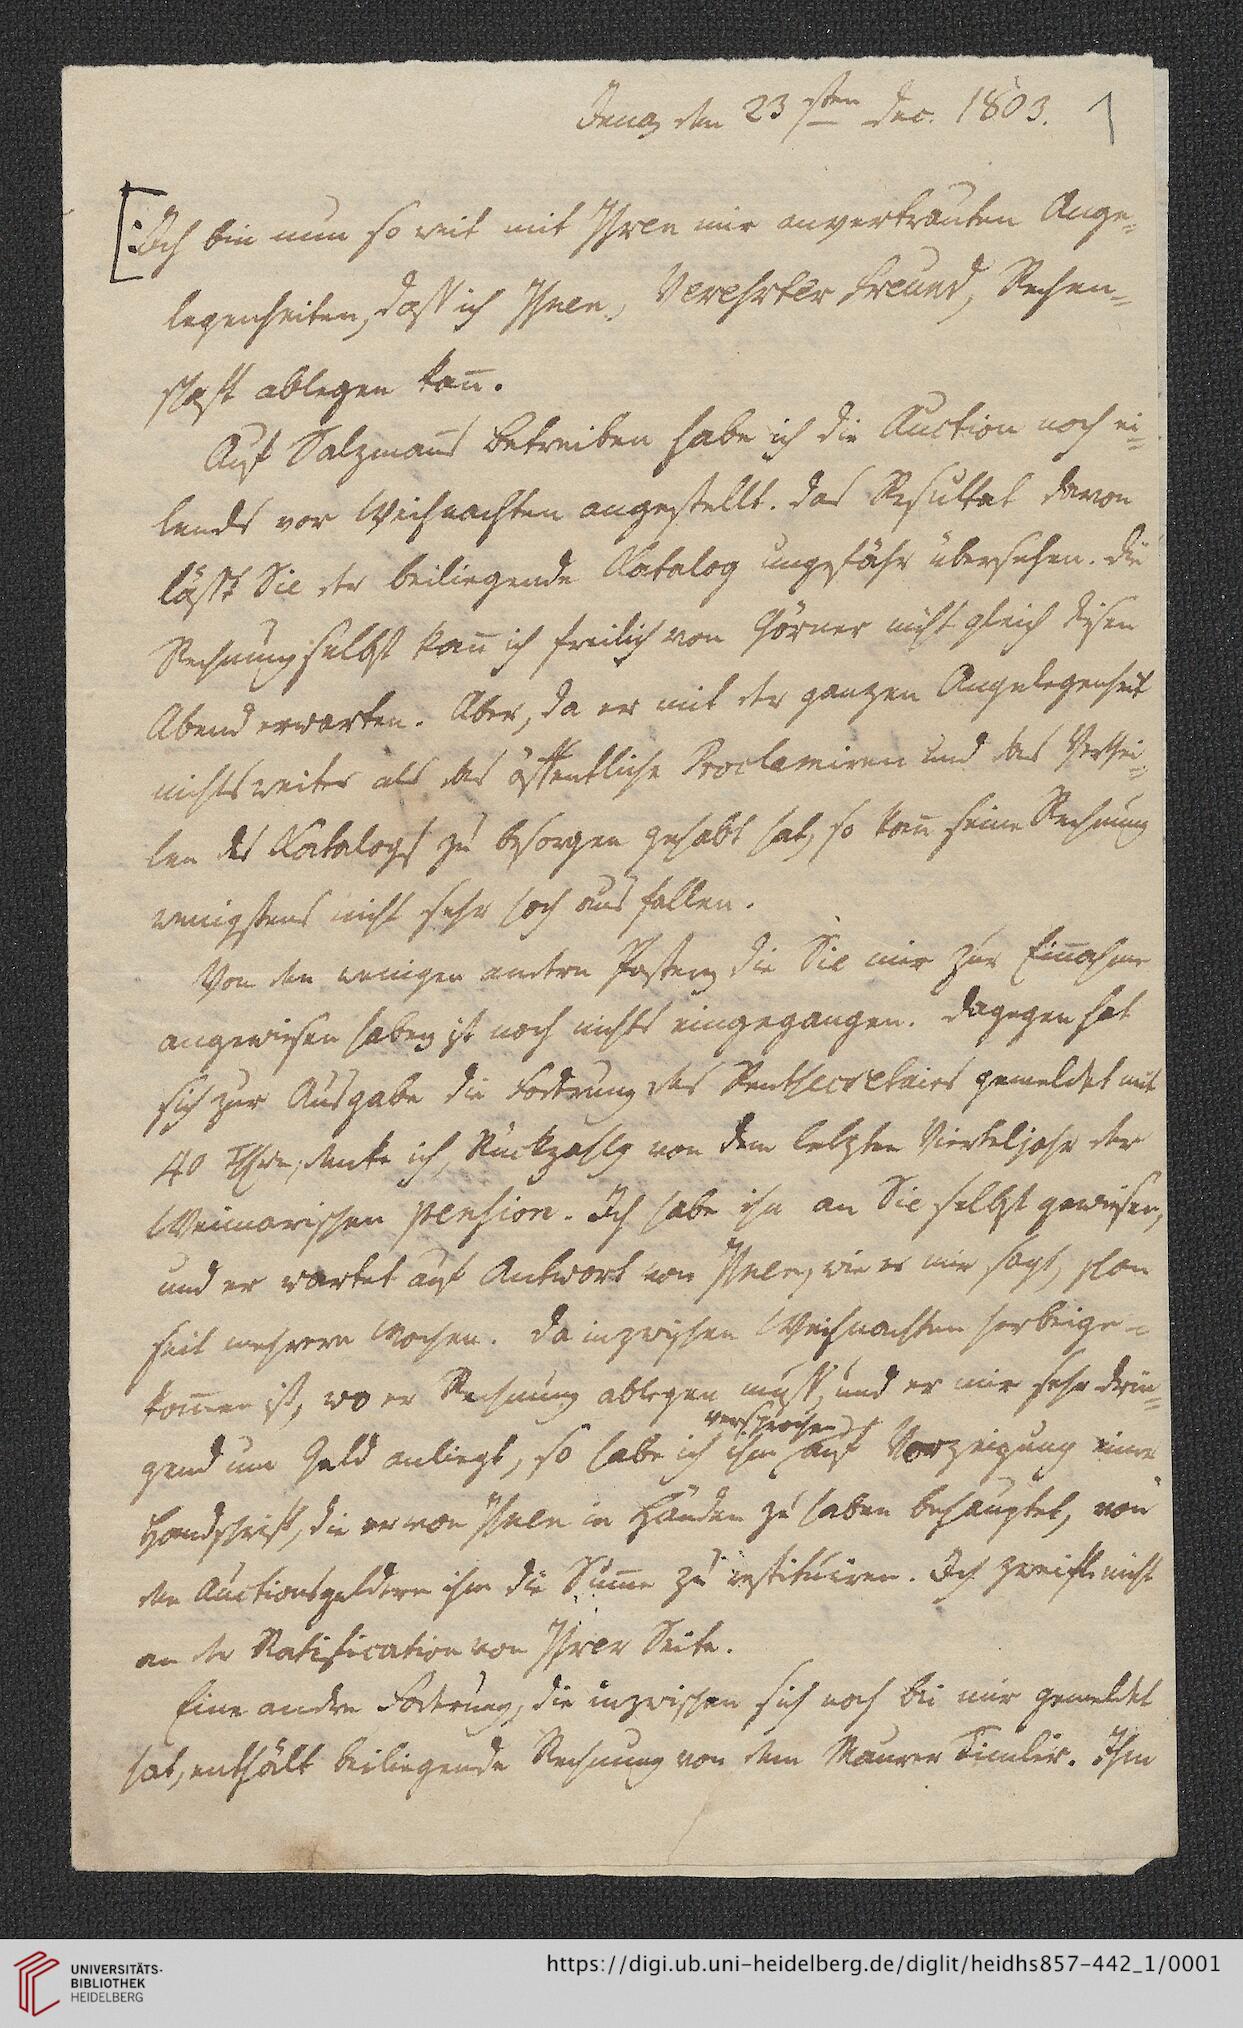 Jena den 23sten Dec. 1803.
1
Ich bin nun so weit mit Ihren mir anvertrauten Ange-
legenheiten, daß ich Ihnen, Verehrter Freund, Rechen-
schaft ablegen kann̄.
Auf Salzmanns Betreiben habe ich die Auction noch ei-
lends vor Weihnachten angestellt. Das Resultat davon
läßt Sie der beiliegende Katalog ungefähr übersehen. Die
Rechnung selbst kan̄ ich freilich von Görner nicht gleich diesen
Abend erwarten. Aber, da er mit der ganzen Angelegenheit
nichts weiter als das öffentliche Proclamiren und das Verthei-
len des Katalogs zu besorgen gehabt hat, so kan̄ seine Rechnung
wenigstens nicht sehr hoch aus fallen.
Von den wenigen andern Posten, die Sie mir zur Einnahme
angewiesen haben, ist noch nichts eingegangen. Dagegen hat
sich zur Ausgabe die Foderung des Rentsecretairs gemeldet mit
40 Thrn, denke ich, Rückzahlg von dem letzten Vierteljahr der
Weimarischen Pension. Ich habe ihn an Sie selbst gewiesen,
und er wartet auf Antwort von Ihnen, wie er mir sagt, schon
seit mehrern Wochen. Da inzwischen Weihnachten herbeige-
kom̄en ist, wo er Rechnung ablegen muß, und er mir sehr drin-
gend um Geld anliegt, so habe ich ihm versprochen, auf Vorzeigung einer
Handschrift, die er von Ihnen in Händen zu haben behauptet, von
den Auctionsgeldern ihm die Sum̄e zu restituiren. Ich zweifle nicht
an der Ratification von Ihrer Seite.
Eine andre Foderung, die inzwischen sich noch bei mir gemeldet
hat, enthält beiliegende Rechnung von dem Maurer Timler. Ihm
UNIVERSITÄTS-
BIBLIOTHEK
HEIDELBERG
https://digi.ub.uni-heidelberg.de/diglit/heidhs857-442_1/0001